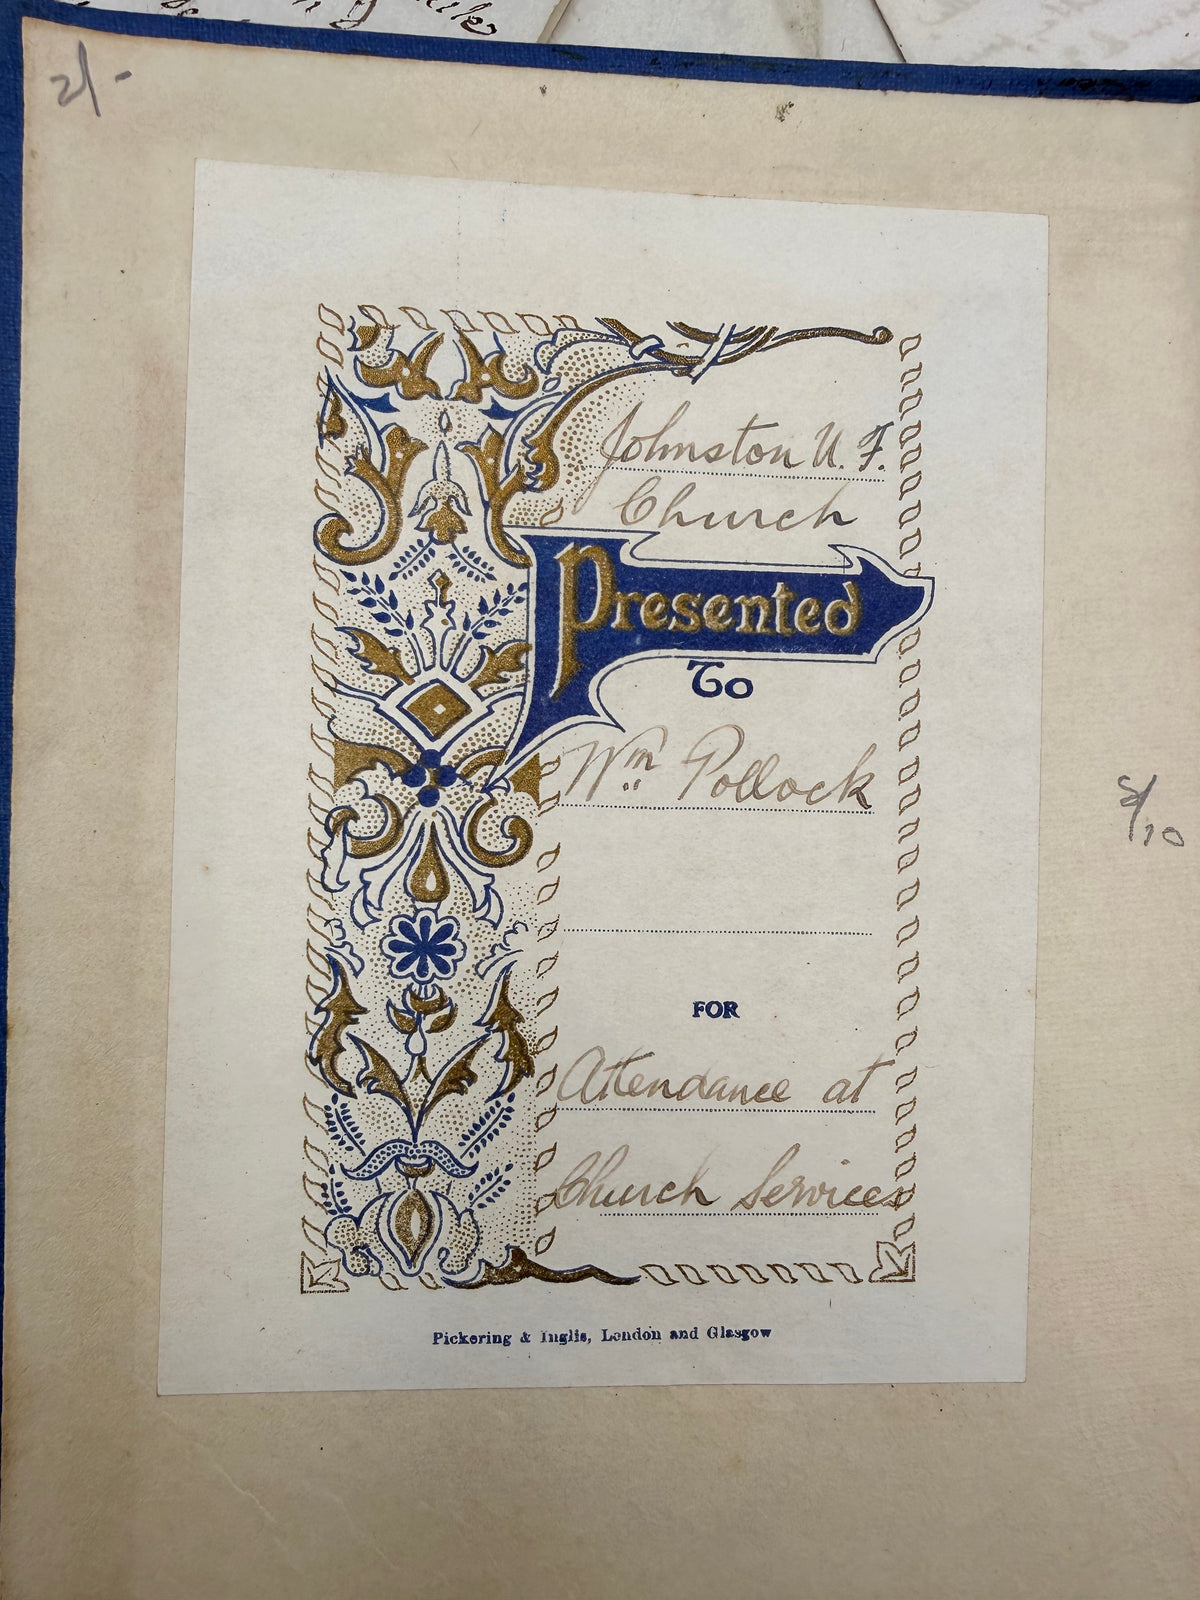 2/-
Johnston U. F.
Church
Presented
To
Wm Pollock
FOR
Attendance at
Church Services
Pickering & Inglis, London and Glasgow